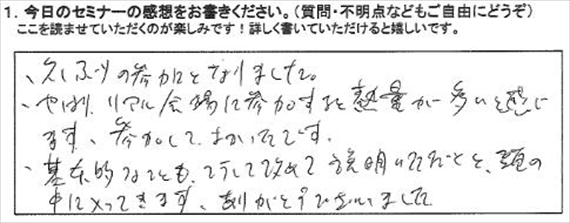 1. 今日のセミナーの感想をお書きください。(質問・不明点などもご自由にどうぞ)
ここを読ませていただくのが楽しみです！詳しく書いていただけると嬉しいです。
、久しぶりの参加となりました。
・やはり、リアル会場に参加すると熱量が多いと感じ
ます、参加して、よかったです。
・基本的なことも、こうして改めて説明いただくと、頭の
中に入ってきます、ありがとうございました